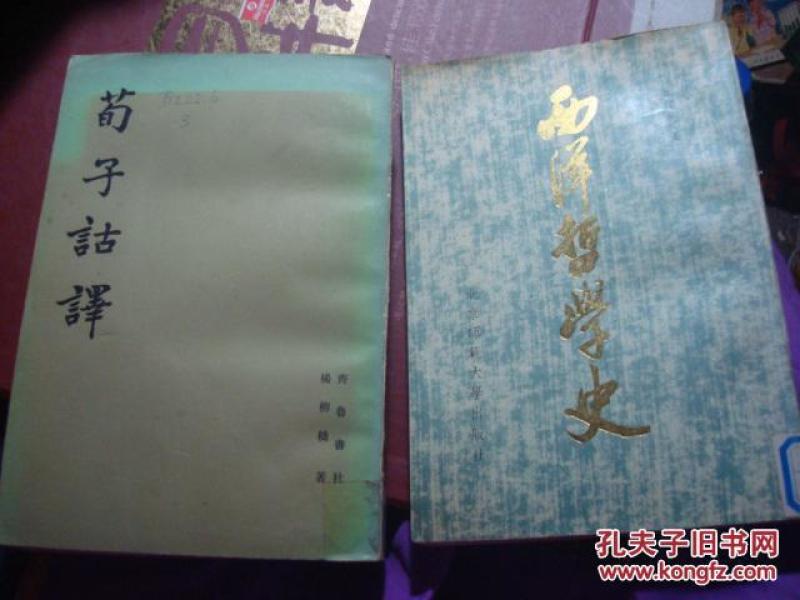 荀子詁譯
B222.6
3
齊魯書社
楊柳橋 著
西洋哲學史
北京師範大學出版社
孔夫子旧书网
www.kongfz.com